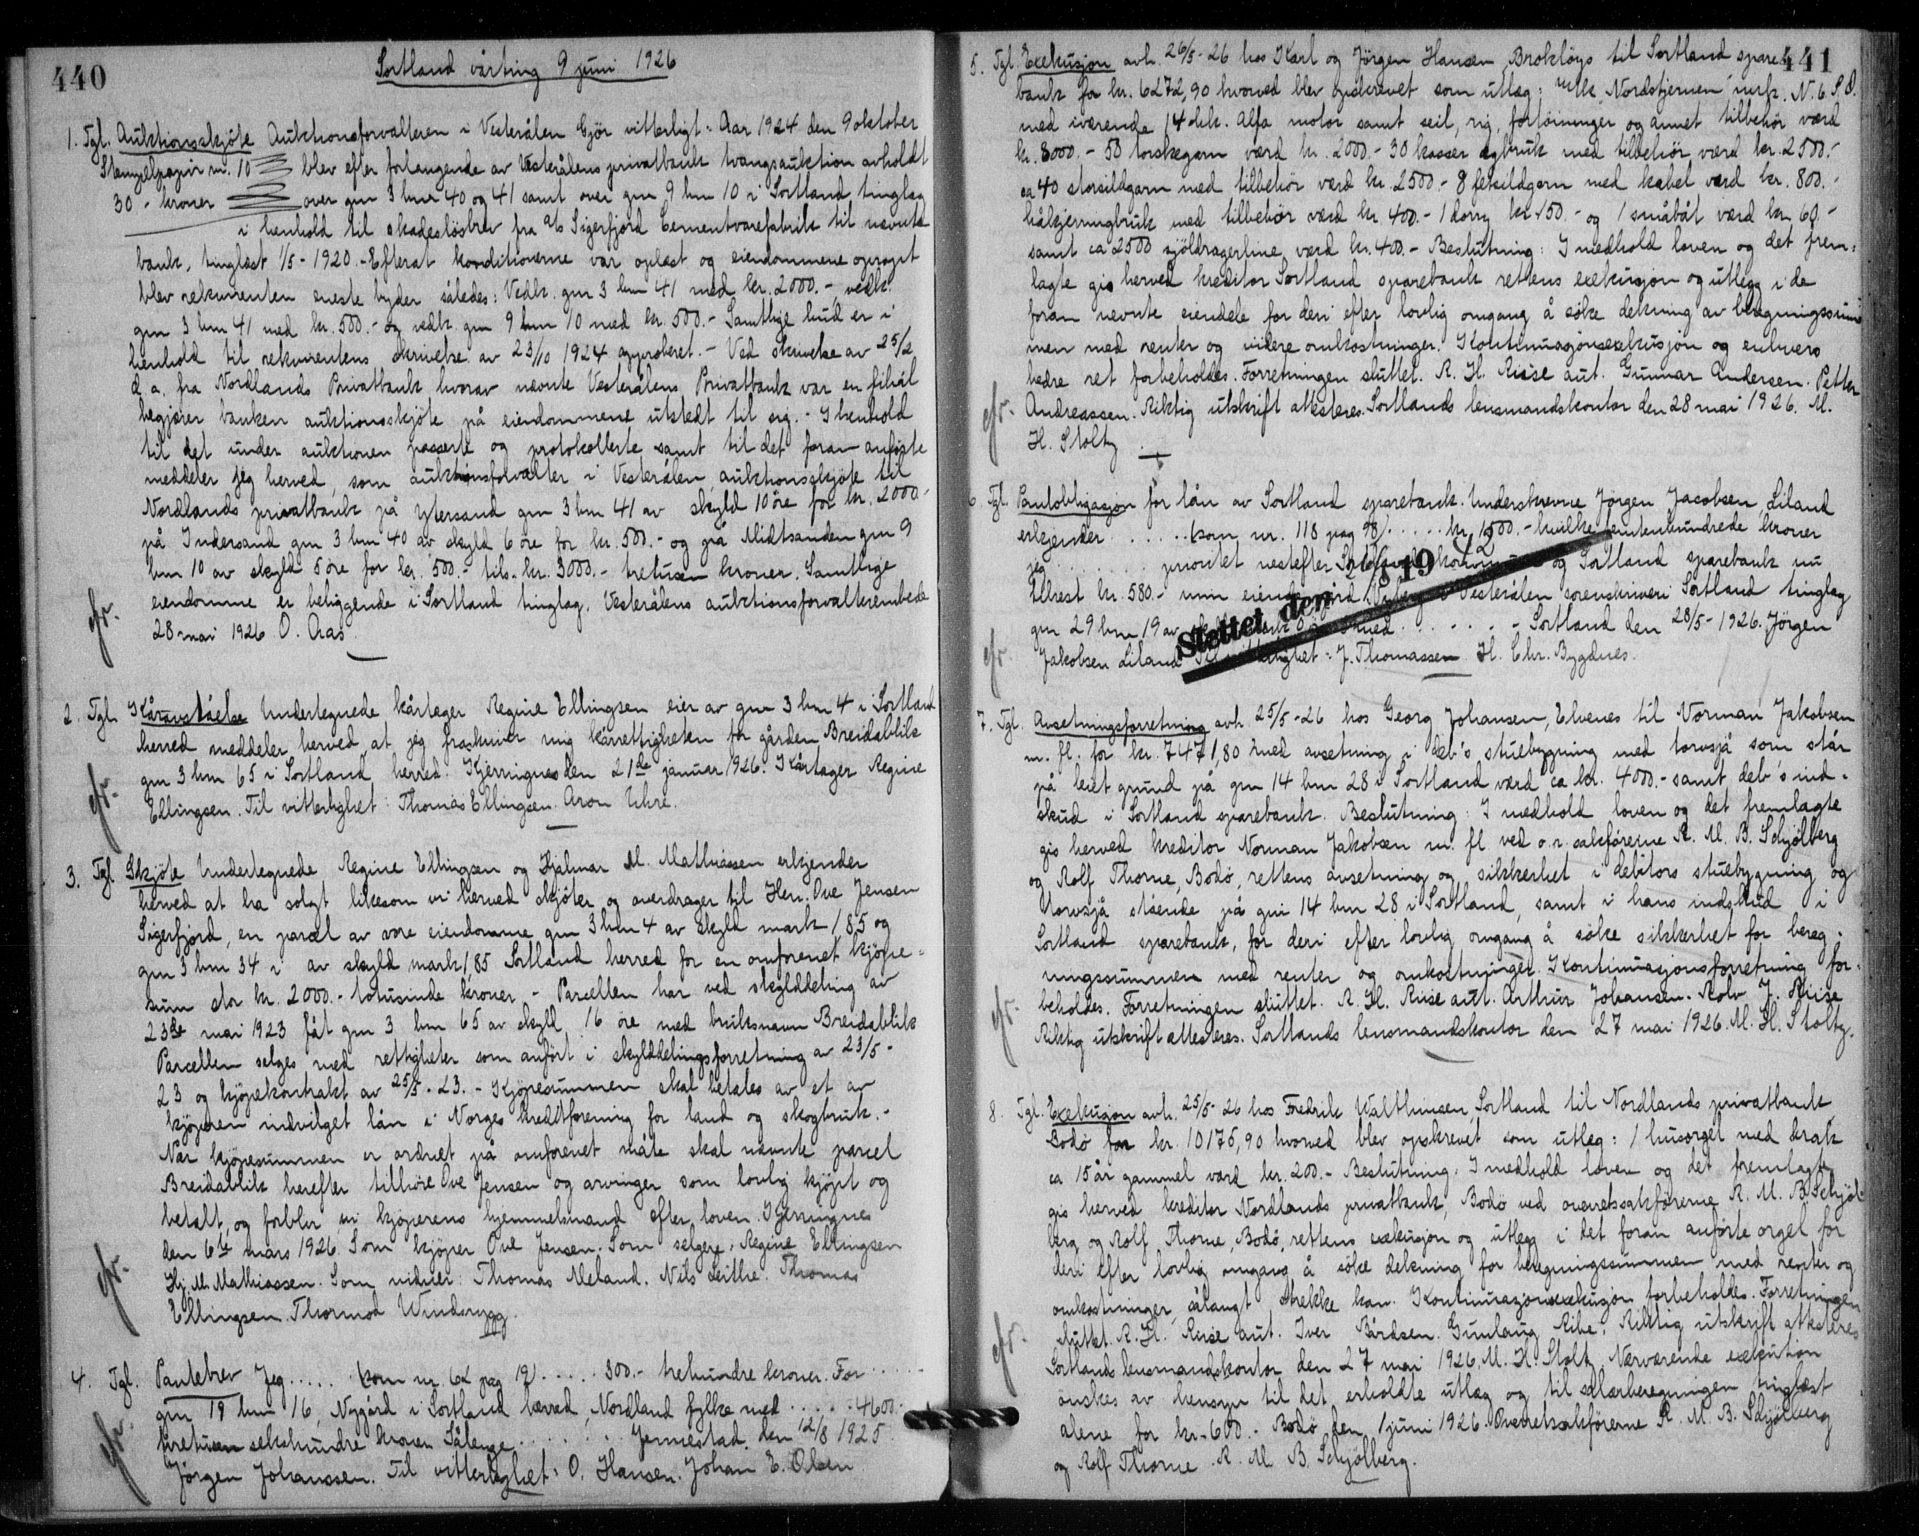 440
Sortland vårting 9 juni 1926
1. Tgl. Auktionsskjöte Auktionsforvalteren i Vesterålen Gjör vitterligt: Aar 1924 den 9 oktober
Stempelpapir nr. 10 blev efter forlangende av Vesterålens privatbank tvangsauktion avholdt
30 - kroner over gnr 3 bnr 40 og 41 samt over gnr 9 bnr 10 i Sortland tinglag
i henhold til skadeslösbrev fra A/s Sigerfjord Cementvarefabrik til nævnte
bank, tinglæst 1/5 - 1920. - Efterat konditionerne var oplæst og eiendommene opropt
blev rekvirenten eneste byder således: Vedk. gnr 3 bnr 41 med kr. 2000.-, vedk.
gnr 3 bnr 41 med kr. 500.- og vedk. gnr 9 bnr 10 med kr. 500.- Samtlige bud er i
henhold til rekvirentens skrivelse av 23/10 1924 approberet. - Ved skrivelse av 25/2
d. a. fra Nordlands Privatbank hvorav nævnte Vesterålens Privatbank var en filial
begjærer banken auktionsskjöte på eiendommene utstedt til sig. - I henhold
til det under auktionen passerte og protokollerte samt til det foran anförte
meddeler jeg herved, som auktionsforvalter i Vesterålen auktionsskjöte til
Nordlands privatbank på Ytersand gnr 3 bnr 41 av skyld 10 öre for kr. 2000.-
på Indersand gnr 3 bnr 40 av skyld 6 öre for kr. 500.- og på Midtsanden gnr 9
bnr 10 av skyld 5 öre for kr. 500.- tils. kr. 3000.- tretusen kroner. Samtlige
eiendomme er beliggende i Sortland tinglag. Vesterålens auktionsforvalterembede
28 mai 1926 O. Aas.
cfr.
2. Tgl. Kåravståelse Undertegnede kårtager Regine Ellingsen eier av gnr 3 bnr 4 i Sortland
herred meddeler herved, at jeg fraskriver mig kårrettigheten for gården Breidablik
gnr 3 bnr 65 i Sortland herred. Kjerringnes den 21de januar 1926. Kårtager Regine
Ellingsen. Til vitterlighet: Thomas Ellingsen. Aron Uhre.
cfr.
3. Tgl. Skjöte Undertegnede Regine Ellingsen og Hjalmar M. Mathiassen erkjender
herved at ha solgt likesom vi herved skjöter og overdrager til Herr. Ove Jensen
Sigerfjord, en parcel av vore eiendomme gnr 3 bnr 4 av skyld mark 1,85 og
gnr 3 bnr 34 i av skyld mark 1,85 Sortland herred for en omforenet kjöpe-
sum stor kr. 2000.- totusinde kroner - Parcellen har ved skylddeling av
23de mai 1923 fåt gnr 3 bnr 65 av skyld 16 öre med bruksnavn Breidablik
Parcellen selges med rettigheter som anfört i skylddelingsforretning av 23/5 -
23 og kjöpekontrakt av 25/5 - 23. - Kjöpesummen skal betales av et av
kjöperen indvilget lån i Norges kreditforening for land og skogbruk. -
Når kjöpesummen er ordnet på omforenet måte skal nævnte parcel
Breidablik herefter tilhöre Ove Jensen og arvinger som lovlig kjöpt og
betalt, og forblir vi kjöperens hjemmelsmand efter loven. Kjerringnes
den 6te mars 1926. Som kjöper Ove Jensen. Som selgere: Regine Ellingsen
Hj. M. Mathiassen. Som vidner: Thomas Meland. Nils Leithe. Thomas
Ellingsen. Thormod Windsrygg.
cfr.
4. Tgl. Pantebrev Jeg ..... (som nr. 62 pag 19) ..... 300.- trehundre kroner. For .....
gnr 19 bnr 16, Nygård i Sortland herred, Nordland fylke med ..... 4600.-
firetusen sekshundre kroner Sålenge ........ Jennestad den 12/8 1925
Jörgen Johanssen. Til vitterlighet: O. Hansen. Johan E. Olsen
cfr.
441
5. Tgl. Exekusjon avh. 26/5 - 26 hos Karl og Jörgen Hansen, Brokløys til Sortland spare-
bank for kr. 6272,90 hvorved blev opskrevet som utlæg: M/k. Nordstjernen, mrk. N. 6. S O.
med iværende 14 hk. Alfa motor samt seil, rig, fortöininger og annet tilbehör værd
kr. 8000.- 50 torskegarn værd kr. 2000.- 30 kasser egbruk med tilbehör værd kr. 2500.-
ca 40 storsildgarn med tilbehör værd kr. 2500.- 8 fetsildgarn med kabel værd kr. 800.-
håkjerringbruk med tilbehör værd kr. 400.- 1 dorry kr 150.- og 1 småbåt værd kr. 60.-
samt ca 2500 sjöldragerline værd kr. 400.- Beslutning: I medhold loven og det frem-
lagte gis herved kreditor Sortland sparebank rettens exekusjon og utlegg i de
foran nevnte eiendele for deri efter lovlig omgang å söke dekning av beregningssum
men med renter og videre omkostninger. Kontinuasjonsexekusjon og enhvers
bedre ret forbeholdes. Forretningen sluttet. R. H. Riise aut. Gunnar Andersen. Petter
Andreassen. Riktig utskrift attesteres. Sortlands lensmandskontor den 28 mai 1926. M.
H. Stoltz
cfr.
6. Tgl. Pantobligasjon for lån av Sortland sparebank. Underskrevne Jörgen Jacobsen Liland
erkjender ..... (som nr. 118 pag 98) ..... kr. 1500.- hvilke femtenhundrede kroner
jeg ........ prioritet nestefter Sortland kommune og Sortland sparebank nu
tilrest kr. 580.- min eiendom i Vesterålen sorenskriveri Sortland tinglag
gnr 29 bnr 19 av med ...... - Sortland den 28/5 - 1926. Jörgen
Jakobsen Liland Til vitterlighet: J. Thomassen H. Chr. Bygdnes.
Slettet den 19 42
cfr.
7. Tgl. Avsetningsforretning avh. 25/5 - 26 hos Georg Johansen, Elvenes til Norman Jakobsen
m. fl. for kr. 7471,80 med avsetning i deb's stuebygning med torvsjå som står
på leiet grund på gnr 14 bnr 28 i Sortland værd ca kr. 4000.- samt deb's ind-
skud i Sortland sparebank. Beslutning: I medhold loven og det fremlagte
gis herved kreditor Norman Jakobsen m. fl ved o. r. sakförerne R. M. B. Schjölberg
og Rolf Thorne, Bodö, rettens avsetning og sikkerhet i debitors stuebygning og
torvsjå stående på gnr 14 bnr 28 i Sortland, samt i hans indskud i
Sortland sparebank, for deri efter lovlig omgang å söke sikkerhet for bereg-
ningssummen med renter og omkostninger. Kontinuasjonsforretning for-
beholdes. Forretningen sluttet. R. H. Riise aut. Arthur Johansen. Rolv J. Riise
Riktig utskrift attesteres. Sortlands lensmandskontor den 27 mai 1926. M. H. Stoltz.
cfr.
8. Tgl. Exekusjon avh. 25/5 - 26 hos Fredrik Walthinsen, Sortland til Nordlands privatbank
Bodö for kr. 10175,90 hvorved blev opskrevet som utlæg: 1 husorgel med krak
ca 15 år gammel værd kr. 200.- Beslutning: I medhold loven og det fremlagte
gis herved kreditor Nordlands privatbank, Bodö ved overretssakförerne R. M. B. Schjöl-
berg og Rolf Thorne, Bodö, rettens exekusjon og utlegg i det foran anförte orgel for
deri efter lovlig omgang å söke dekning for beregningssummen med renter og
omkostninger, sålangt strekke kan. Kontinuasjonsexekusjon forbeholdes. Forretningen
sluttet. R. H. Riise aut. Iver Bårdsen. Gunlaug Ribe. Riktig utskrift attesteres
Sortlands lensmandskontor den 27 mai 1926. M. H. Stoltz. Nærværende exekution
önskes av hensyn til det erholdte utlæg og til salærberegningen tinglæst
alene for kr. 600.- Bodö den 1 juni 1926. Overretssakförerne R. M. B. Schjölberg
og Rolf Thorne R. M B. Schjölberg.
cfr.